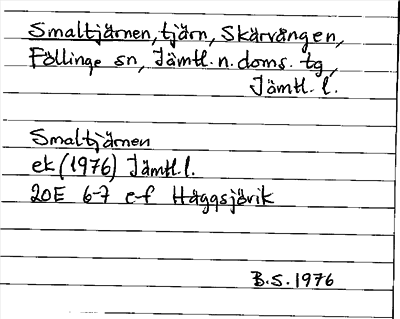 Smaltjärnen, tjärn, Skärvången,
Föllinge sn, Jämtl. n. doms. tg,
Jämtl. l.
Smaltjärnen
ek (1976) Jämtl. l.
20E 6-7 e-f Häggsjövik
B.S. 1976